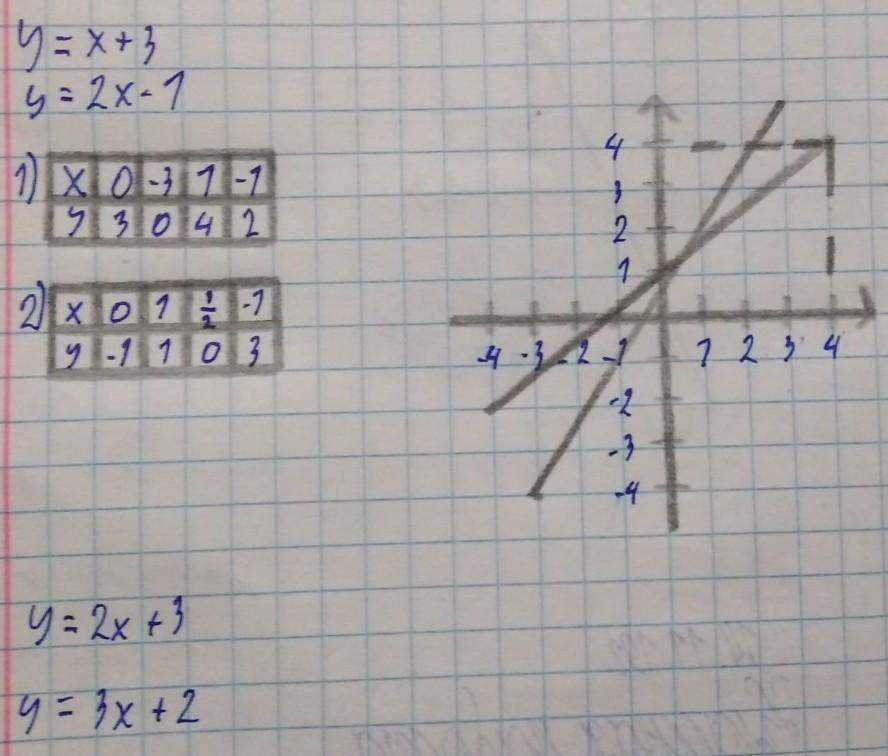 y = x + 3
y = 2x - 1
1) x 0 -3 1 -1
y 3 0 4 2
2) x 0 1 1/2 -1
y -1 1 0 3
4
3
2
1
-4 -3 -2 -1 1 2 3 4
-2
-3
-4
y = 2x + 3
y = 3x + 2